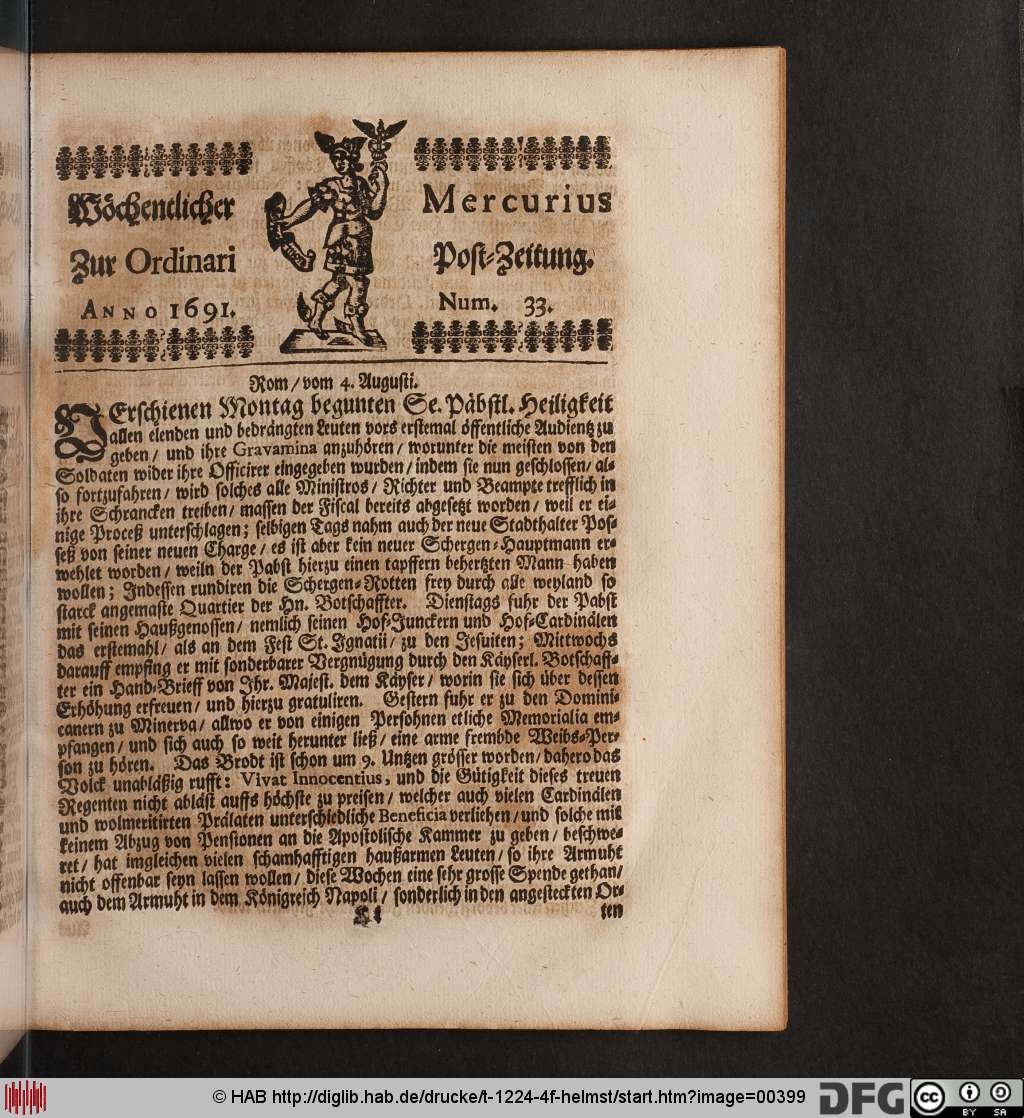 Wöchentlicher Mercurius
Zur Ordinari Post-Zeitung.
ANNO 1691. Num. 33.
Rom / vom 4. Augusti.
VErschienen Montag begunten Se. Päbstl. Heiligkeit
allen elenden und bedrängten Leuten vors erstemal öffentliche Audientz zu
geben / und ihre Gravamina anzuhören / worunter die meisten von den
Soldaten wider ihre Officirer eingegeben wurden / indem sie nun geschlossen / al-
so fortzufahren / wird solches alle Ministros / Richter und Beampte trefflich in
ihre Schrancken treiben / massen der Fiscal bereits abgesetzt worden / weil er ei-
nige Proceß unterschlagen; selbigen Tags nahm auch der neue Stadthalter Pos-
seß von seiner neuen Charge / es ist aber kein neuer Schergen-Hauptmann er-
wehlet worden / weiln der Pabst hierzu einen tapffern behertzten Mann haben
wollen; Indessen rundiren die Schergen-Rotten frey durch alle weyland so
starck angemaste Quartier der Hn. Botschaffter. Dienstags fuhr der Pabst
mit seinen Haußgenossen / nemlich seinen Hof-Junckern und Hof-Cardinälen
das erstemahl / als an dem Fest St. Ignatii / zu den Jesuiten; Mittwochs
darauff empfing er mit sonderbarer Vergnügung durch den Käyserl. Botschaff-
ter ein Hand-Brieff von Ihr. Majest. dem Käyser / worin sie sich über dessen
Erhöhung erfreuen / und hierzu gratuliren. Gestern fuhr er zu den Domini-
canern zu Minerva / allwo er von einigen Persohnen etliche Memorialia em-
pfangen / und sich auch so weit herunter ließ / eine arme frembde Weibs-Per-
son zu hören. Das Brodt ist schon um 9. Untzen grösser worden / dahero das
Volck unabläßig rufft: Vivat Innocentius, und die Gütigkeit dieses treuen
Regenten nicht abläst auffs höchste zu preisen / welcher auch vielen Cardinälen
und wolmeritirten Prälaten unterschiedliche Beneficia verliehen / und solche mit
keinem Abzug von Pensionen an die Apostolische Kammer zu geben / beschwe-
ret / hat imgleichen vielen schamhafftigen haußarmen Leuten / so ihre Armuht
nicht offenbar seyn lassen wollen / diese Wochen eine sehr grosse Spende gethan /
auch dem Armuht in dem Königreich Napoli / sonderlich in den angesteckten Or-
ten
© HAB http://diglib.hab.de/drucke/t-1224-4f-helmst/start.htm?image=00399 DFG cc BY SA